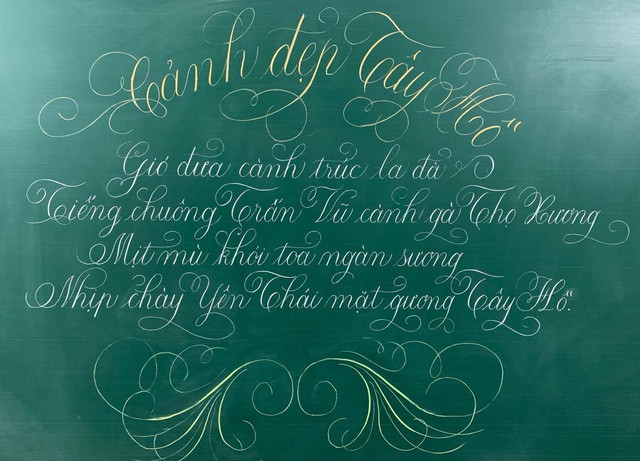 Cảnh đẹp Tây Hồ
Gió đưa cành trúc la đà
Tiếng chuông Trấn Vũ cành gà Thọ Xương
Mịt mù khói tỏa ngàn sương
Nhịp chày Yên Thái mặt gương Tây Hồ.